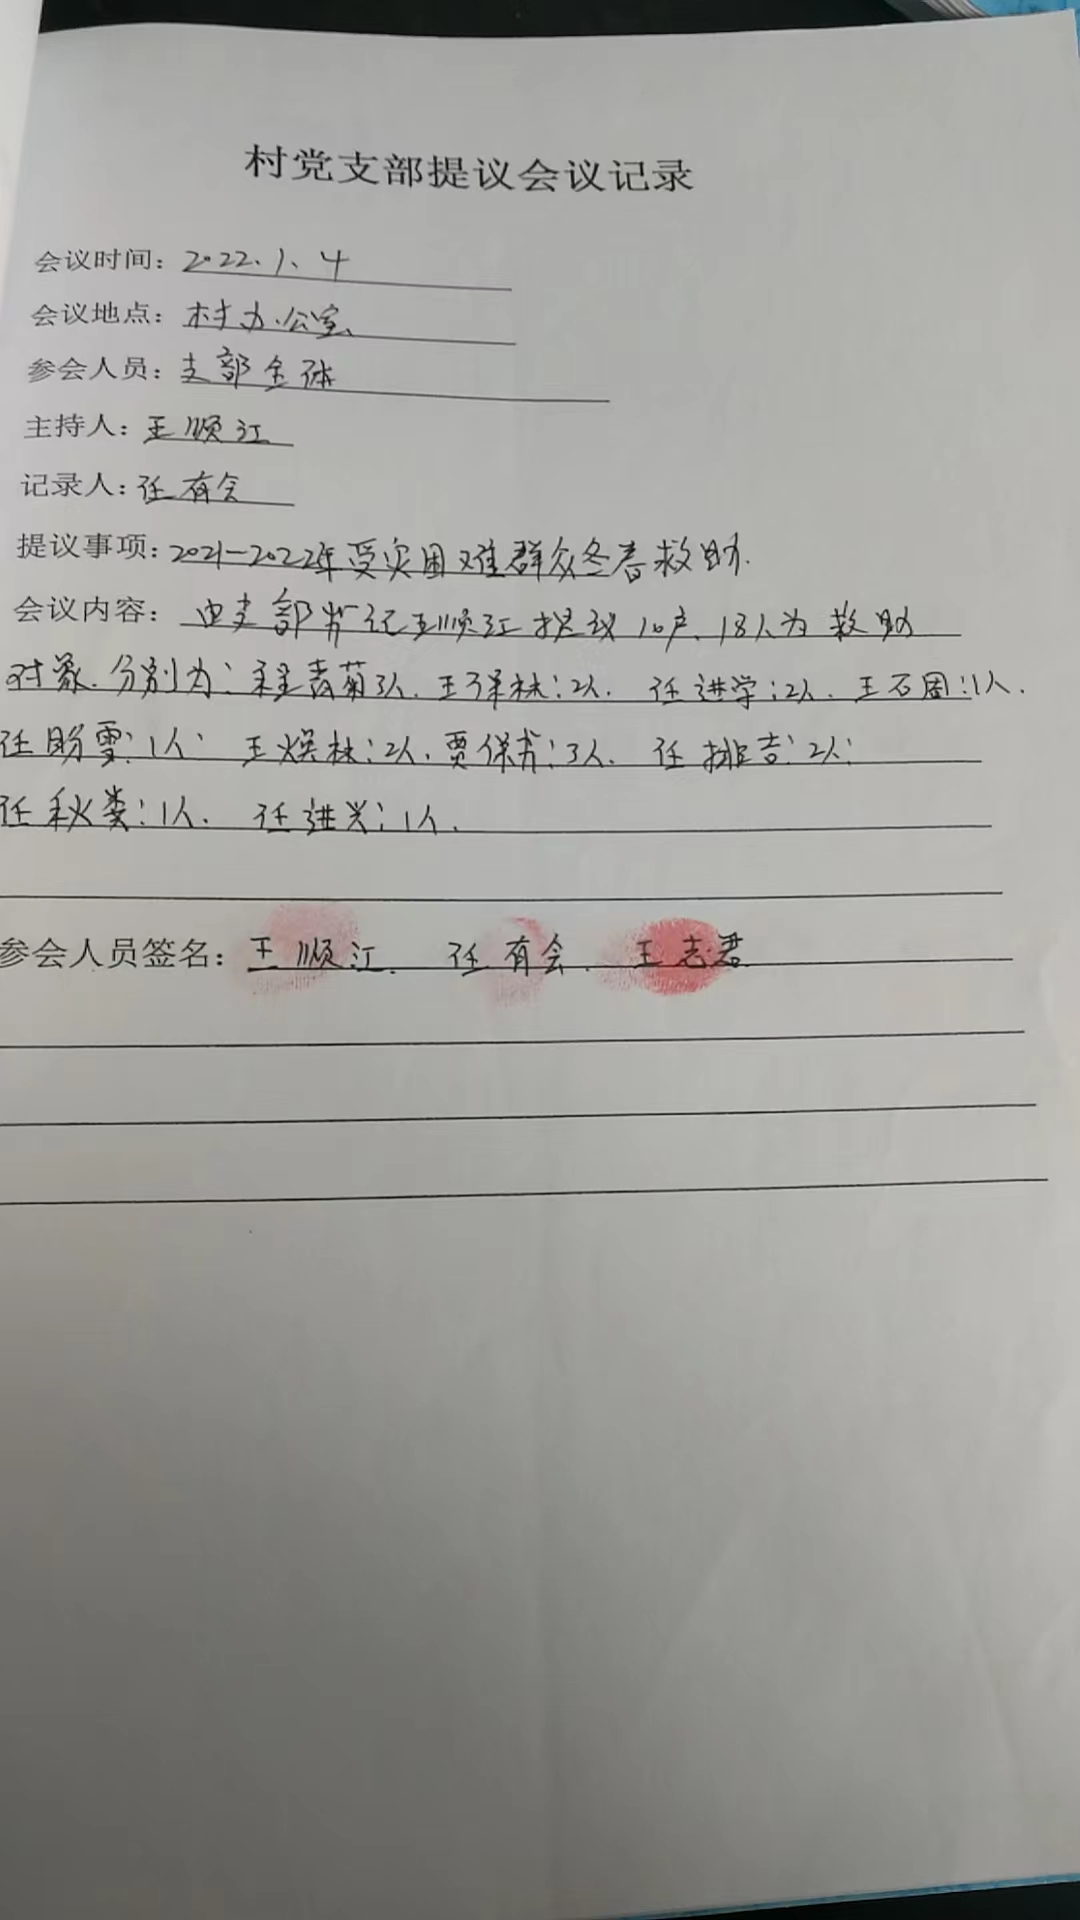 村党支部提议会议记录
会议时间：2022、1、4
会议地点：村办公室、
参会人员：支部全体
主持人：王顺江
记录人：任有会
提议事项：2021—2022年受灾困难群众冬春救助.
会议内容：由支部书记王顺江提议10户、18人为救助
对象.分别为：菊3人.王保林：2人.任进学：2人.王石周：1人.
任盼雪：1人；王焕林：2人.贾保书：3人.任排吉：2人；
任秋娄：1人.任进兴：1人.
参会人员签名：王顺江.任有会.王志君